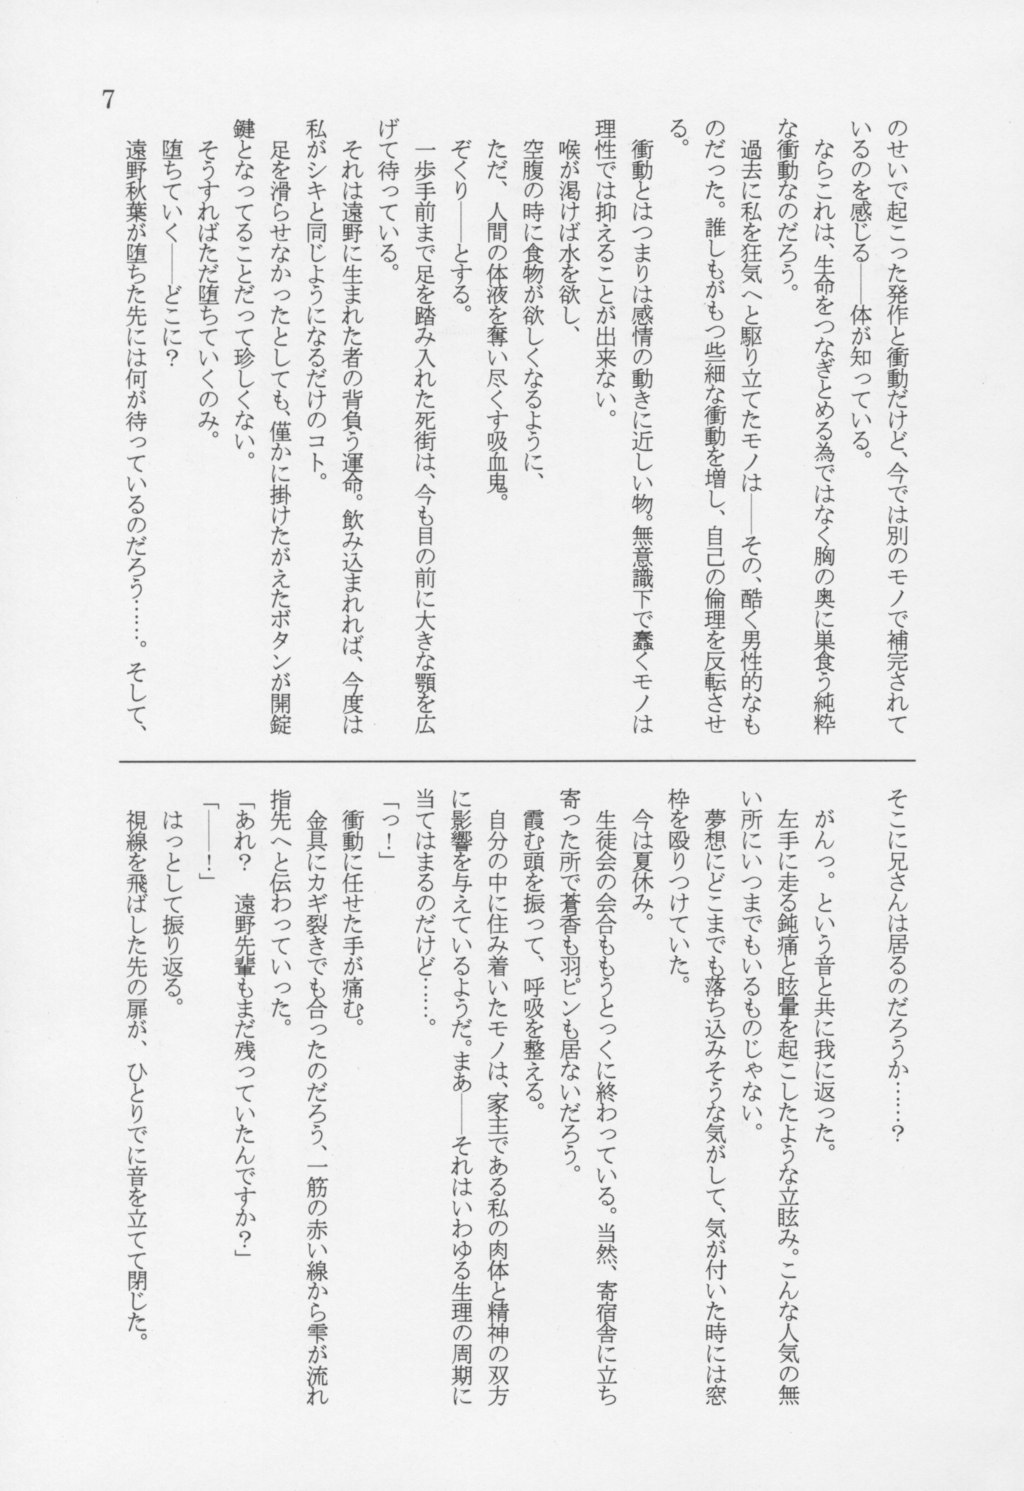 7
のせいで起こった発作と衝動だけど、今では別のモノで補完されて
いるのを感じる――体が知っている。
ならこれは、生命をつなぎとめる為ではなく胸の奥に巣食う純粋
な衝動なのだろう。
過去に私を狂気へと駆り立てたモノは――その、酷く男性的なも
のだった。誰しもがもつ些細な衝動を増し、自己の倫理を反転させ
る。
衝動とはつまりは感情の動きに近しい物。無意識下で蠢くモノは
理性では抑えることが出来ない。
喉が渇けば水を欲し、
空腹の時に食物が欲しくなるように、
ただ、人間の体液を奪い尽くす吸血鬼。
ぞくり――とする。
一歩手前まで足を踏み入れた死街は、今も目の前に大きな顎を広
げて待っている。
それは遠野に生まれた者の背負う運命。飲み込まれれば、今度は
私がシキと同じようになるだけのコト。
足を滑らせなかったとしても、僅かに掛けたがえたボタンが開錠
鍵となってることだって珍しくない。
そうすればただ堕ちていくのみ。
堕ちていく――どこに？
遠野秋葉が堕ちた先には何が待っているのだろう……。そして、
そこに兄さんは居るのだろうか……？
がんっ。という音と共に我に返った。
左手に走る鈍痛と眩暈を起こしたような立眩み。こんな人気の無
い所にいつまでもいるものじゃない。
夢想にどこまでも落ち込みそうな気がして、気が付いた時には窓
枠を殴りつけていた。
今は夏休み。
生徒会の会合ももうとっくに終わっている。当然、寄宿舎に立ち
寄った所で蒼香も羽ピンも居ないだろう。
霞む頭を振って、呼吸を整える。
自分の中に住み着いたモノは、家主である私の肉体と精神の双方
に影響を与えているようだ。まあ――それはいわゆる生理の周期に
当てはまるのだけど……。
「っ！」
衝動に任せた手が痛む。
金具にカギ裂きでも合ったのだろう、一筋の赤い線から雫が流れ
指先へと伝わっていった。
「あれ？　遠野先輩もまだ残っていたんですか？」
「――！」
はっとして振り返る。
視線を飛ばした先の扉が、ひとりでに音を立てて閉じた。